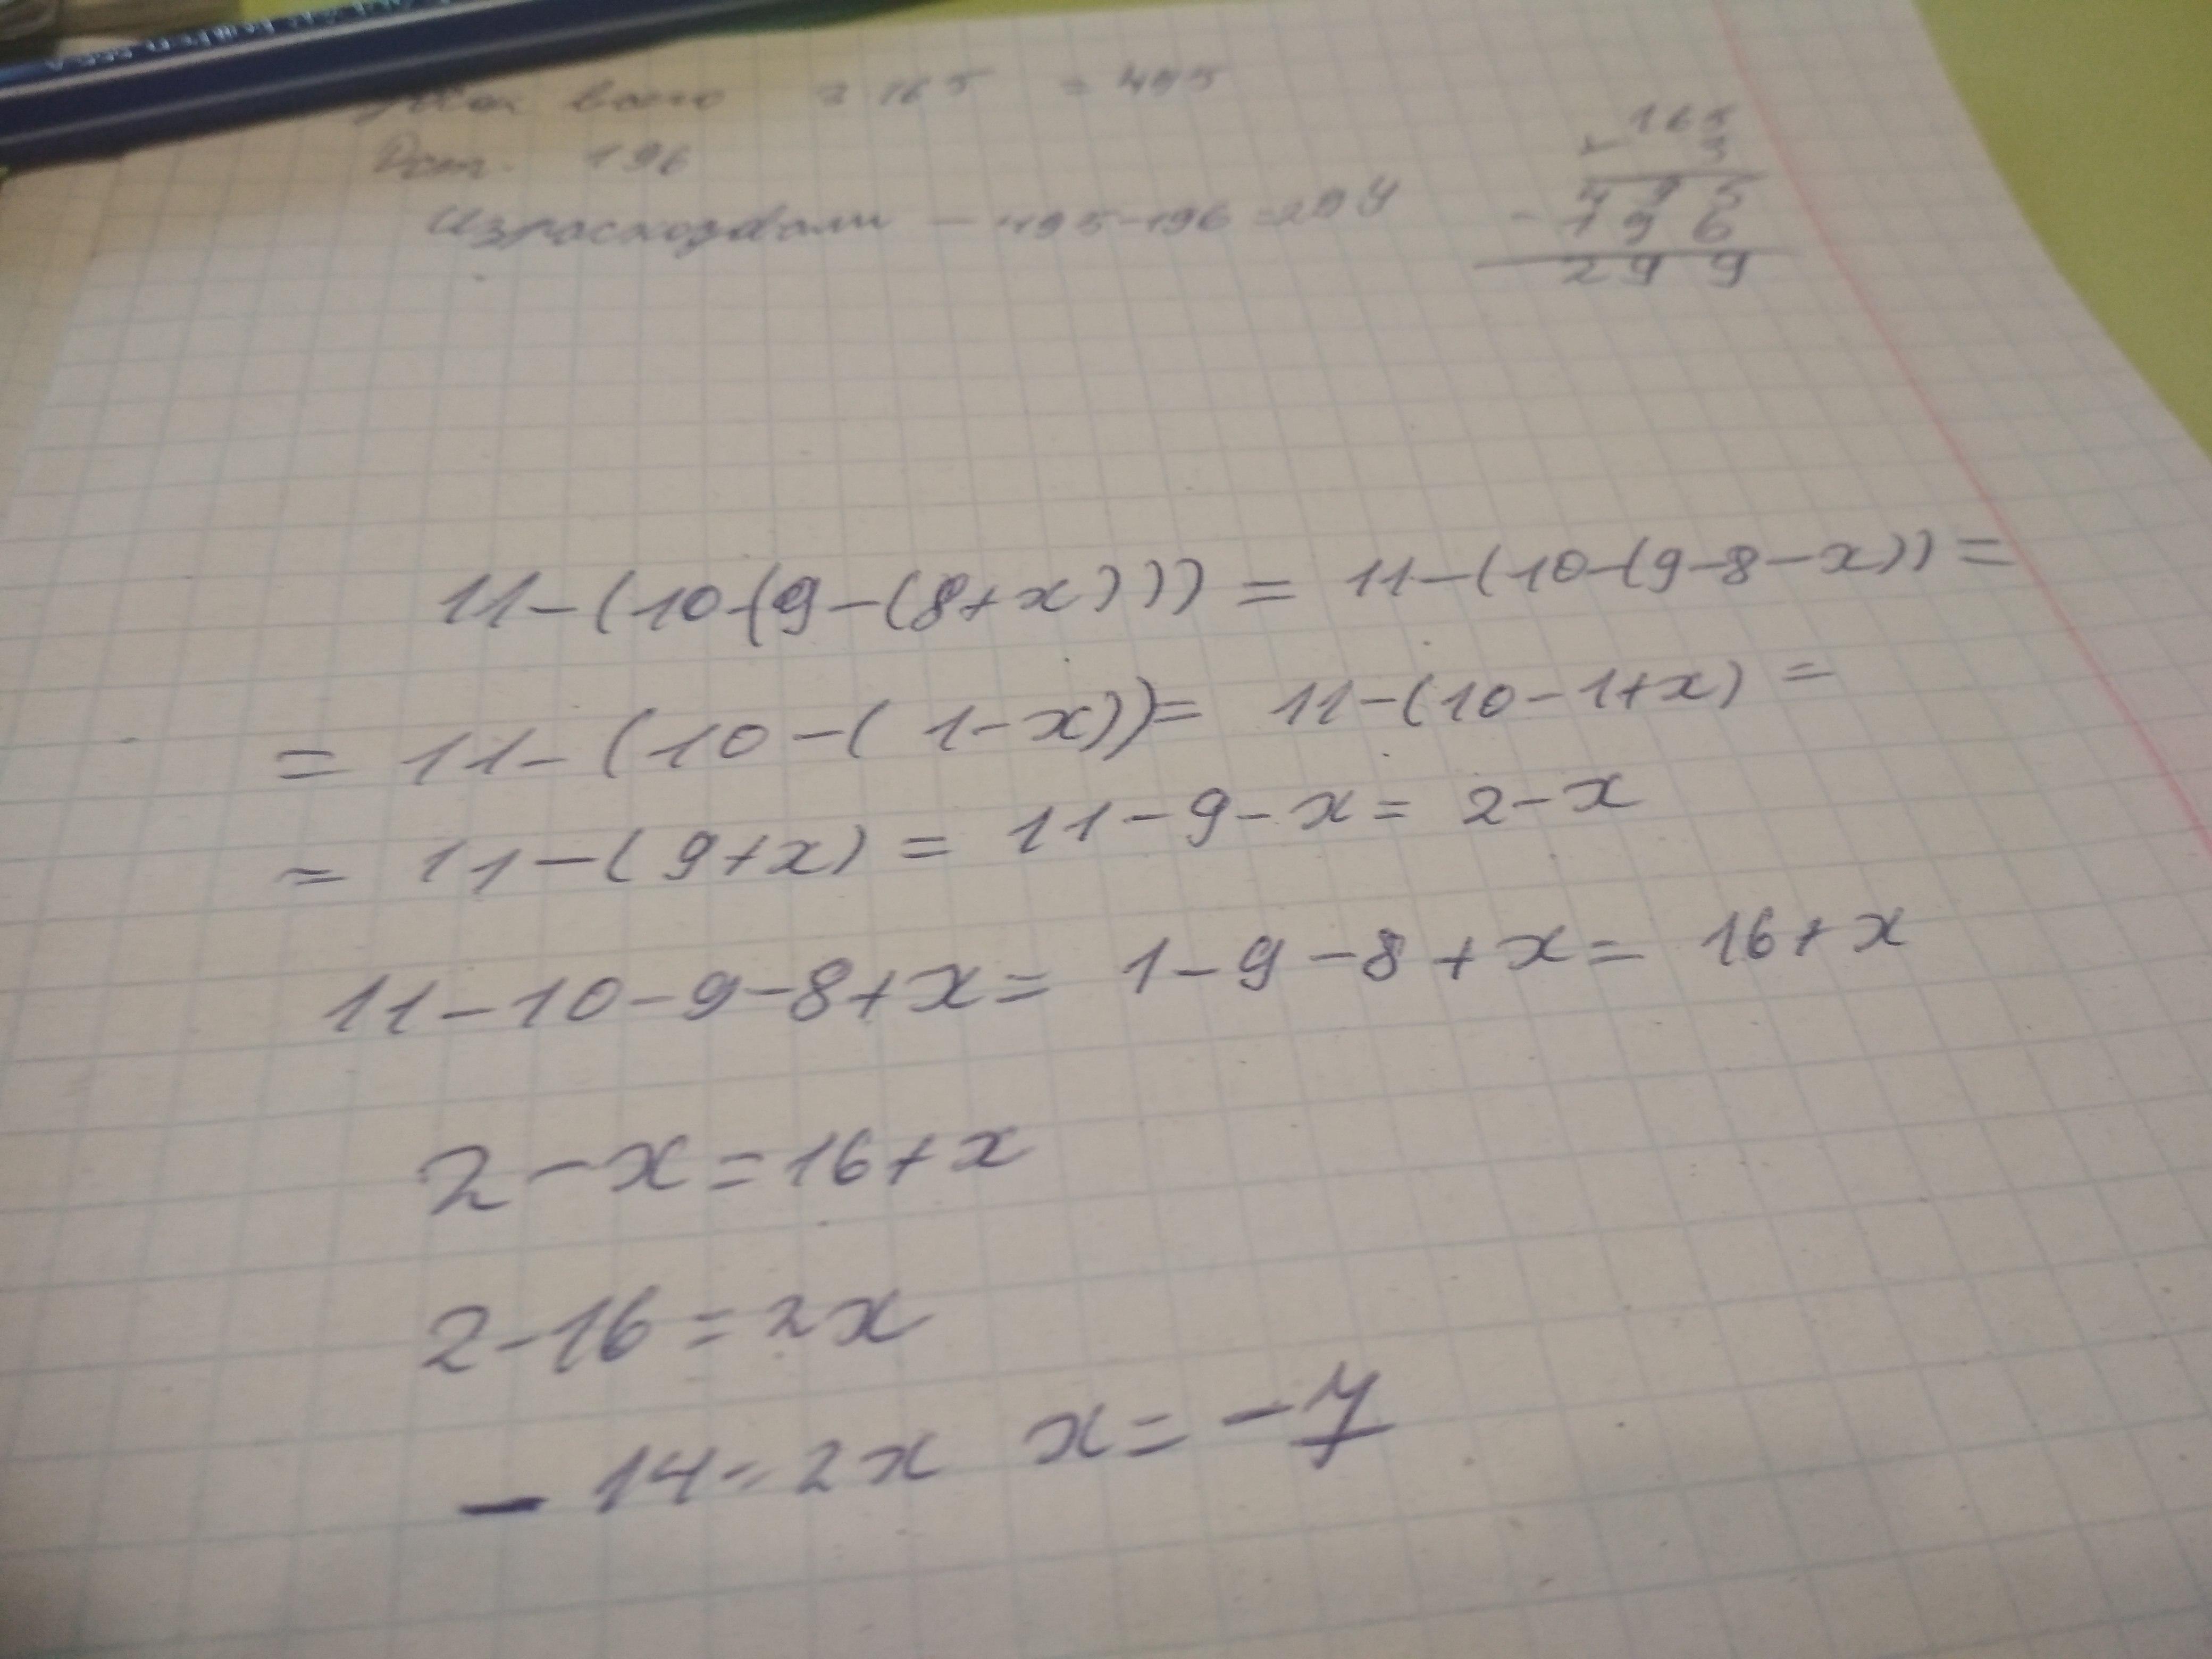 всего = 165 = 495
Ост. 196
Израсходовали - 495-196=299
165
× 3
495
- 196
299
11-(10-(9-(8+x))) = 11-(10-(9-8-x)) =
= 11-(10-(1-x)) = 11-(10-1+x) =
= 11-(9+x) = 11-9-x = 2-x
11-10-9-8+x = 1-9-8+x = 16+x
2-x=16+x
2-16=2x
-14=2x x=-7